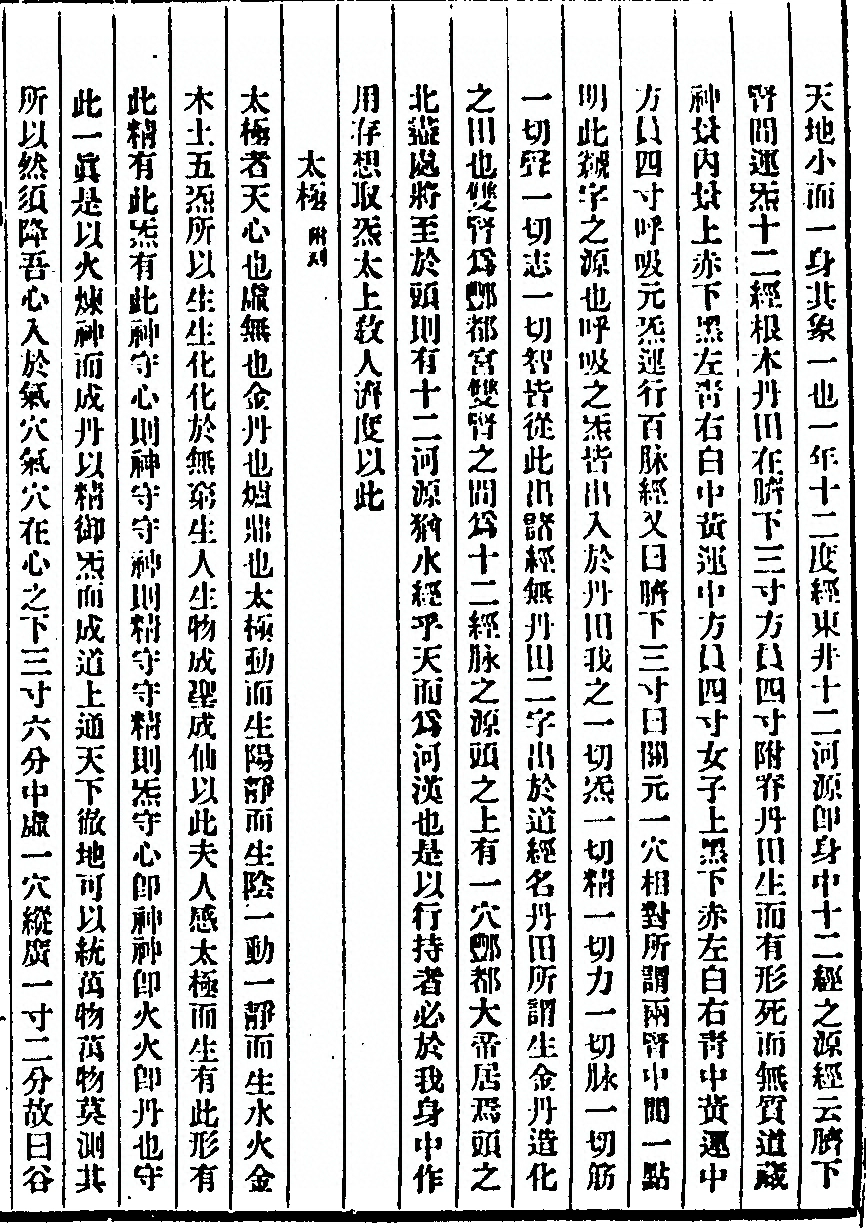 天地小而一身其象一也一年十二度經東井十二河源卽身中十二經之源經云臍下
腎間運炁十二經根本丹田在臍下三寸方員四寸附脊丹田生而有形死而無質道藏
神景內景上赤下黑左靑右白中黃運中方員四寸女子上黑下赤左白右靑中黃運中
方員四寸呼吸元炁運行百脉經又曰臍下三寸曰關元一穴相對所謂兩腎中間一點
明此號字之源也呼吸之炁皆出入於丹田我之一切炁一切精一切力一切脉一切筋
一切聲一切志一切智皆從此出諸經無丹田二字出於道經名丹田所謂生金丹造化
之田也雙腎爲酆都宮雙腎之間爲十二經脉之源頭之上有一穴酆都大帝居焉頭之
北盡處將至於頭則有十二河源猶水經乎天而爲河漢也是以行持者必於我身中作
用存想取炁太上敎人濟度以此
太極 附刋
太極者天心也虛無也金丹也爐鼎也太極動而生陽靜而生陰一動一靜而生水火金
木土五炁所以生生化化於無窮生人生物成聖成仙以此夫人感太極而生有此形有
此精有此炁有此神守心則神守守神則精守守精則炁守心卽神神卽火火卽丹也守
此一眞是以火煉神而成丹以精御炁而成道上通天下徹地可以統萬物萬物莫測其
所以然須降吾心入於氣穴氣穴在心之下三寸六分中虛一穴縱廣一寸二分故曰谷